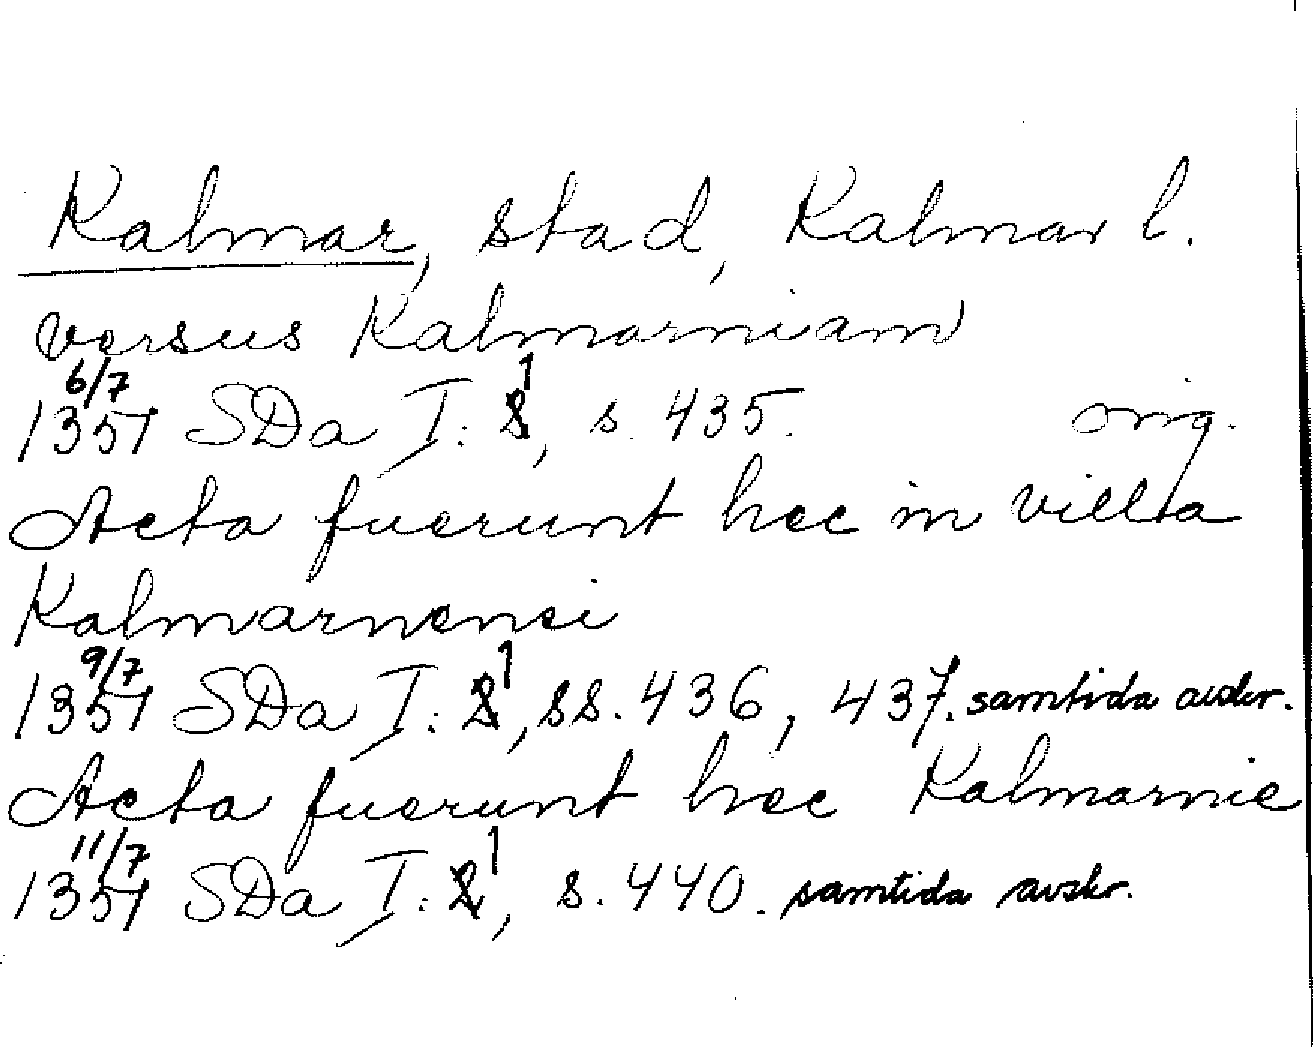 Kalmar, stad, Kalmar l.
versus Kalmarniam
6/7
1357 SDa I: 1, s. 435. orig.
Acta fuerunt hec in villa
Kalmarnensi
9/7
1357 SDa I: 1, ss. 436, 437. samtida avskr.
Acta fuerunt hec Kalmarnie
11/7
1357 SDa I: 1, s. 440. samtida avskr.